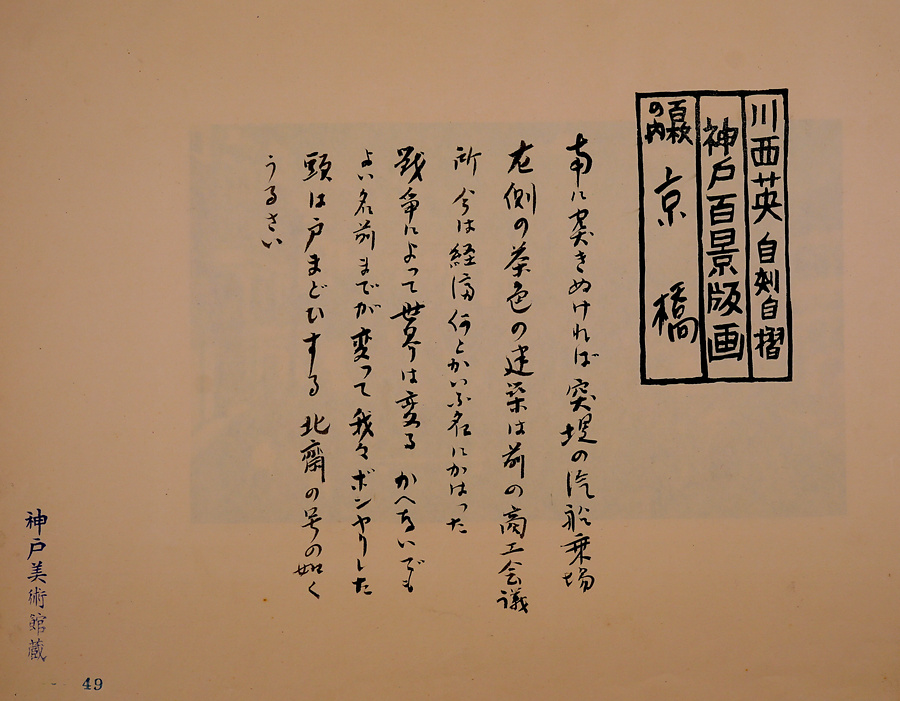 川西英 自刻自摺
神戸百景版画
百枚の内 京橋
南に突きぬければ 突堤の汽船乗場
左側の茶色の建築は前の商工会議
所 今は経済何とかいふ名にかはった
戦争によって世界は変る かへないでも
よい名前までが変って我々ボンヤリした
頭は戸まどひする 北齋の号の如く
うるさい
神戸美術館蔵
49